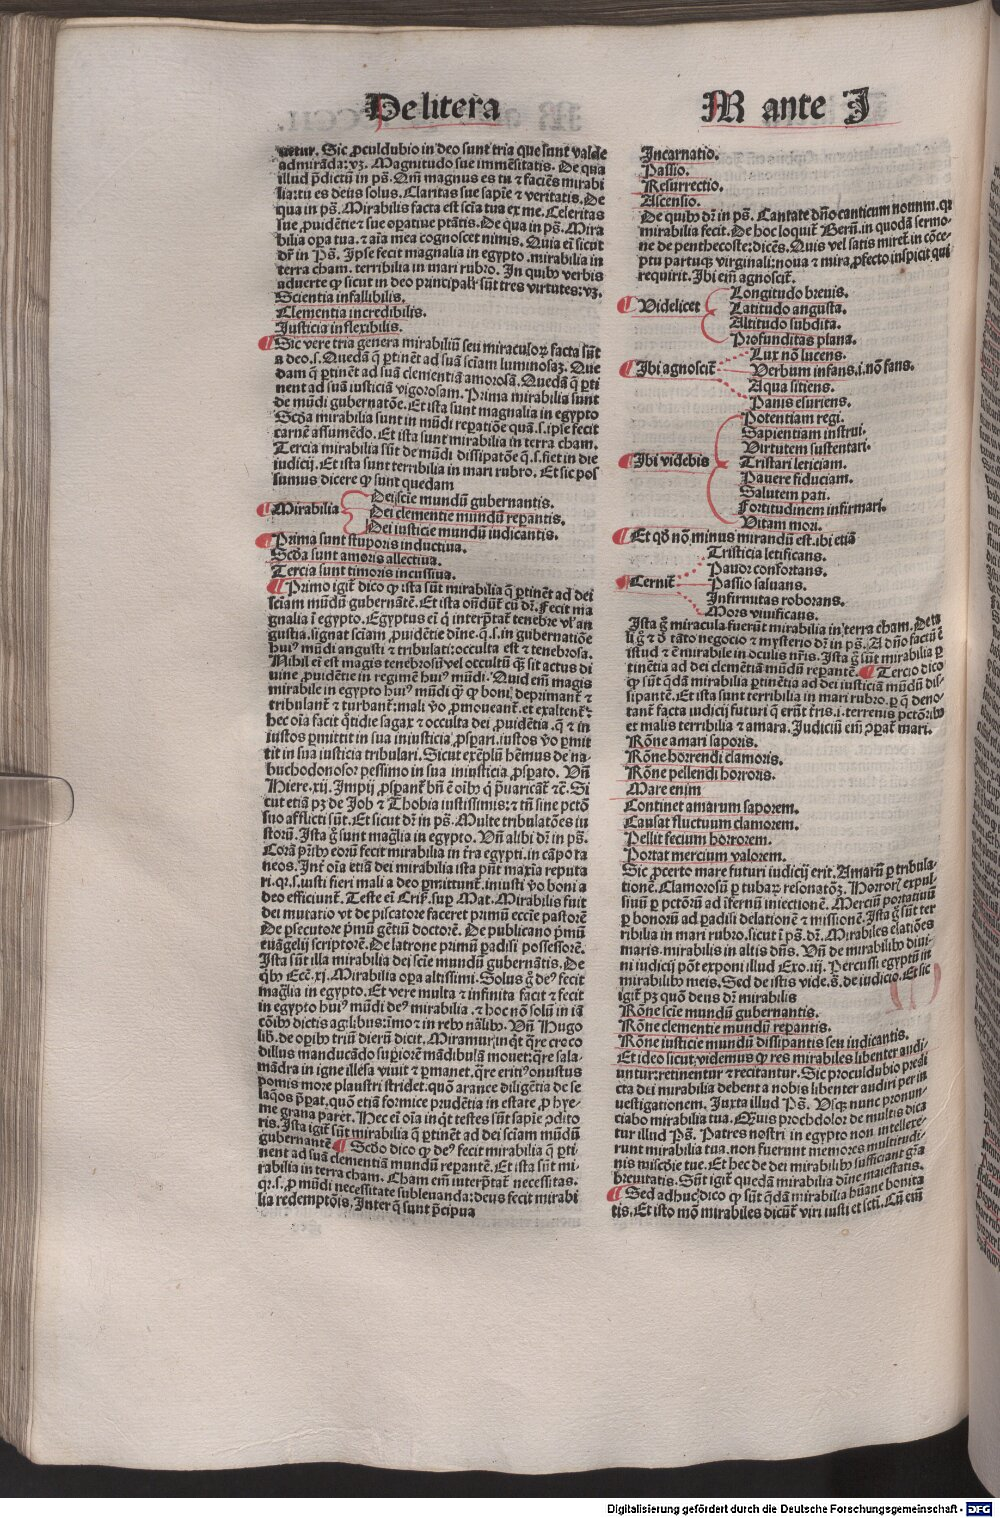 De litera
M ante I
uetur. Sic ꝓculdubio in deo sunt tria que sunt valde
admirāda: vꝫ. Magnitudo sue immēsitatis. De qua
illud p̄dictū in ps̄. Qm̄ magnus es tu ⁊ faciēs mirabi
lia: tu es deus solus. Claritas sue sapiē ⁊ veritatis. De
qua in ps̄. Mirabilis facta est sciā tua ex me. Celeritas
sue ꝓuidētie ⁊ sue opatiue ptātis. De qua in ps̄. Mira
bilia oꝑa tua. ⁊ aīa mea cognoscet nimis. Quia ei sicut
dr̄ in Ps̄. Ipse fecit magnalia in egypto. mirabilia in
terra cham. terribilia in mari rubro. In quibꝰ verbis
aduerte ꝙ sicut in deo principalr̄ sūt tres virtutes: vꝫ.
Scientia infallibilis.
Clementia incredibilis.
Justicia inflexibilis.
¶ Sic vere tria genera mirabiliū seu miraculoꝝ facta sūt
a deo. s. Quedā q̄ ꝑtinēt ad suā sciam luminosaꝫ. Que
dam q̄ ꝑtinēt ad suā clementiā amorosā. Quedā q̄ ꝑti
nent ad suā iusticiā vigorosam. Prima mirabilia sunt
de mūdi gubernatōe. Et ista sunt magnalia in egypto
Scd̄a mirabilia sunt in mūdi reꝑatiōe quā. s. ipse fecit
carnē assumēdo. Et ista sunt mirabilia in terra cham.
Tercia mirabilia sūt de mūdi dissipatōe q̄. s. fiet in die
iudicij. Et ista sunt terribilia in mari rubro. Et sic pos
sumus dicere ꝙ sunt quedam
¶ Mirabilia
Dei scie mundū gubernantis.
Dei clementie mundū reꝑantis.
Dei iusticie mundū iudicantis.
¶ Prima sunt stuporis inductiua.
Scd̄a sunt amoris allectiua.
Tercia sunt timoris incussiua.
¶ Primo igit̄ dico ꝙ ista sūt mirabilia q̄ ꝑtinēt ad dei
sciam mūdū gubernātē. Et ista ondūt̄ cū dr̄. Fecit ma
gnalia ī egypto. Egyptus ei q̄ interp̄tat̄ tenebre vl' an
gustia. signat sciam ꝓuidētie diīne. q̄. s. in gubernatiōe
huiꝰ mūdi angusti ⁊ tribulati: occulta est ⁊ tenebrosa.
Nihil ei est magis tenebrosū vel occultū q̄ȝ sit actus di
uine ꝓuidētie in regimē huiꝰ mūdi. Quid em̄ magis
mirabile in egypto huiꝰ mūdi q̄ȝ ꝙ boni deprimant̄ ⁊
tribulant̄ ⁊ turbant̄: mali v̊o ꝓmoueant̄. et exaltent̄:
hec oīa facit q̄tidie sagax ⁊ occulta dei ꝓuidētia. q̄ ⁊ in
iustos ꝑmittit in sua iniusticia ꝓsꝑari. iustos v̊o ꝑmit
tit in sua iusticia tribulari. Sicut exēplū hēmus de na
buchodonosor pessimo in sua iniusticia ꝓsꝑato. Vn̄
Hiere. xij. Impij ꝓsꝑant̄ bn̄ ē oībꝰ q̄ p̄uaricāt̄ ⁊c̄. Si
cut etiā pꝫ de Job ⁊ Thobia iustissimis: ⁊ tn̄ sine pctō
suo afflicti sūt. Et sicut dr̄ in ps̄. Multe tribulatōes iu
storū. Ista g̊ sunt mag̃lia in egypto. Vn̄ alibi dr̄ in ps̄.
Corā pr̄ibꝰ eorū fecit mirabilia in tr̄a egypti. in cāpo ta
neos. Int̄ oīa etiā dei mirabilia ista pn̄t maxīa reputa
ri. q̄. s. iusti fieri mali a deo ꝑmittunt̄. iniusti v̊o boni a
deo efficiunt̄. Teste ei Cris̄. suꝑ Mat. Mirabilis fuit
dei mutatio vt de piscatore faceret primū eccīe pastorē
De ꝑsecutore p̄mū gētiū doctorē. De publicano p̄mū
euāgelij scriptorē. De latrone primū ꝑadisi possessorē.
Ista sūt illa mirabilia dei scie mundū gubernātis. De
q̄bꝰ Ecc̄. xj. Mirabilia oꝑa altissimi. Solus g̊ deꝰ fecit
mag̃lia in egypto. Et vere multa ⁊ infinita facit ⁊ fecit
in egypto huiꝰ mūdi deꝰ mirabilia. ⁊ hoc nō solū in ia
cōibꝰ dictis agilibus: imo ⁊ in rebꝰ nālibꝰ. Vn̄ Hugo
lib̄. de oꝑibꝰ triū dierū dicit. Miramur inq̄t q̄re croco
dillus manducādo supiorē mādibulā mouet: q̄re sala
mādra in igne illesa viuit ⁊ ꝑmanet. q̄re ericiꝰ onustus
pomis more plaustri stridet. quō aranee diligētia de se
laq̊os p̄ꝑat. quō etiā formice prudētia in estate ꝓ hye-
me grana paret. Hec ei oīa inq̄t testes sūt sapiē ꝯdito
ris. Ista igit̄ sūt mirabilia q̄ ꝑtinēt ad dei sciam mūdū
gubernantē. ¶ Scd̄o dico ꝙ deꝰ fecit mirabilia q̄ ꝑti-
nent ad suā clementiā mundū reꝑantē. Et ista sūt mi-
rabilia in terra cham. Cham em̄ interp̄tat̄ necessitas.
q̄. s. ꝓ mūdi necessitate subleuanda: deus fecit mirabi
lia redemptōis. Inter q̄ sunt p̄cipua
Incarnatio.
Passio.
Resurrectio.
Ascensio.
De quibꝰ dr̄ in ps̄. Cantate dn̄o canticum nouum. qr
mirabilia fecit. De hoc loquit̄ Bern̄. in quodā sermo-
ne de penthecoste: dicēs. Quis vel satis miret̄ in cōce-
ptu partuqꝫ virginali: noua ⁊ mira ꝓfecto inspicit qui
requirit. Ibi em̄ agnoscit̄.
¶ Videlicet
Longitudo breuis.
Latitudo angusta.
Altitudo subdita.
Profunditas plana.
¶ Ibi agnoscit̄
Lux nō lucens.
Verbum infans. i. nō fans.
Aqua sitiens.
Panis esuriens.
¶ Ibi videbis
Potentiam regi.
Sapientiam instrui.
Virtutem sustentari.
Tristari leticiam.
Pauere fiduciam.
Salutem pati.
Fortitudinem infirmari.
Vitam mori.
¶ Et qd̄ nō minus mirandū est. ibi etiā
¶ Cernit̄
Tristicia letificans.
Pauor confortans.
Passio saluans.
Infirmitas roborans.
Mors viuificans.
Ista g̊ miracula fuerūt mirabilia in terra cham. De ta
li g̊ ⁊ d̄ tāto negocio ⁊ mysterio dr̄ in ps̄. A dn̄o factū ē
istud ⁊ ē mirabile in oculis nr̄is. Ista g̊ sūt mirabilia ꝑ
tinētia ad dei clemētiā mūdū reꝑantē. ¶ Tercio dico
ꝙ sūt q̄dā mirabilia ꝑtinētia ad dei iusticiā mūdū dis-
sipantē. Et ista sunt terribilia in mari rubro. ꝑ q̄ deno-
tant̄ facta iudicij futuri q̄ erūt tr̄is. i. terrenis pctōribꝰ
et malis terribilia ⁊ amara. Judiciū em̄ ꝯꝑat̄ mari.
Rōne amari saporis.
Rōne horrendi clamoris.
Rōne pellendi horroris.
Mare enim
Continet amarum saporem.
Causat fluctuum clamorem.
Pellit fecium horrorem.
Portat mercium valorem.
Sic ꝓcerto mare futuri iudicij erit. Amarū ꝑ tribula-
tionē. Clamorosū ꝑ tubaꝝ resonatōꝫ. Horroris expul
siuū ꝑ pctōrū ad īfernū iniectionē. Merciū portatiuū
ꝑ bonorū ad ꝑadisi delationē ⁊ missionē. Ista g̊ sūt ter
ribilia in mari rubro. sicut ī ps̄. dr̄. Mirabiles elatiōes
maris. mirabilis in altis dn̄s. Vn̄ de mirabilibꝰ diui-
ni iudicij pōt exponi illud Exo. iij. Percussi egyptū in
mirabilibꝰ meis. Sed de istis vide. s̄. de iudicio. Et sic
igit̄ pꝫ quō deus dr̄ mirabilis
Rōne scie mundū gubernantis.
Rōne clementie mundū reꝑantis.
Rōne iusticie mundū dissipantis seu iudicantis.
Et ideo sicut videmus ꝙ res mirabiles libenter audi-
untur: retinentur ⁊ recitantur. Sic proculdubio predi
cta dei mirabilia debent a nobis libenter audiri per in
uestigationem. Juxta illud Ps̄. Vsqꝫ nunc pronun-
ciabo mirabilia tua. Quis prochdolor de multis dica
tur illud Ps̄. Patres nostri in egypto non intellexe-
runt mirabilia tua. non fuerunt memores multitudi-
nis miscd̄ie tue. Et hec de dei mirabilibꝰ sufficiant gr̄a
breuitatis. Sūt igit̄ quedā mirabilia dīne maiestatis.
¶ Sed adhuc dico ꝙ sūt q̄dā mirabilia hūane bonita
tis. Et isto mō mirabiles dicūt̄ viri iusti et scti. Cū em̄
Digitalisierung gefördert durch die Deutsche Forschungsgemeinschaft - DFG